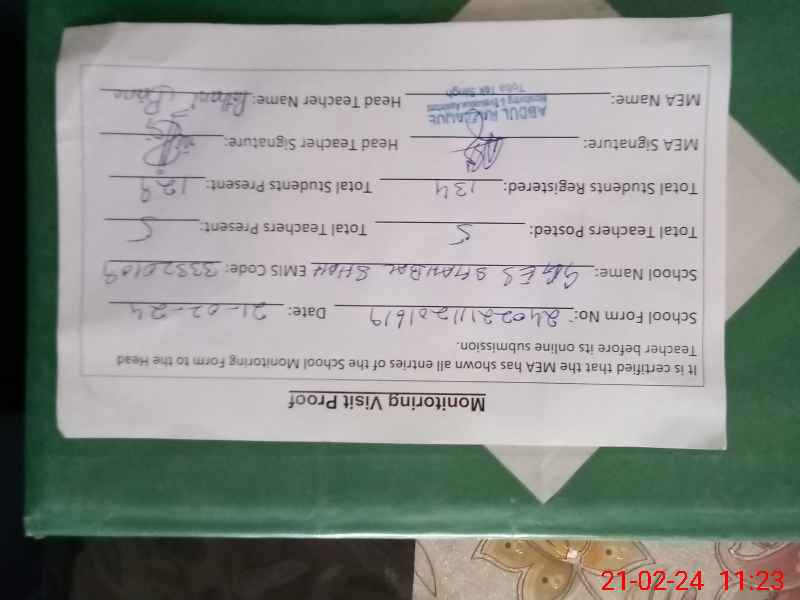 Monitoring Visit Proof
It is certified that the MEA has shown all entries of the School Monitoring Form to the Head
Teacher before its online submission.
School Form No: 24022111201619 Date: 21-02-24
School Name: SHAHBAL SHAH EMIS Code: 33320109
Total Teachers Posted: 5 Total Teachers Present: 5
Total Students Registered: 134 Total Students Present: 129
MEA Signature: Head Teacher Signature:
MEA Name: Head Teacher Name:
ABDUL
Monitoring & Evaluation Assistant
Toba Tek Singh
21-02-24 11:23